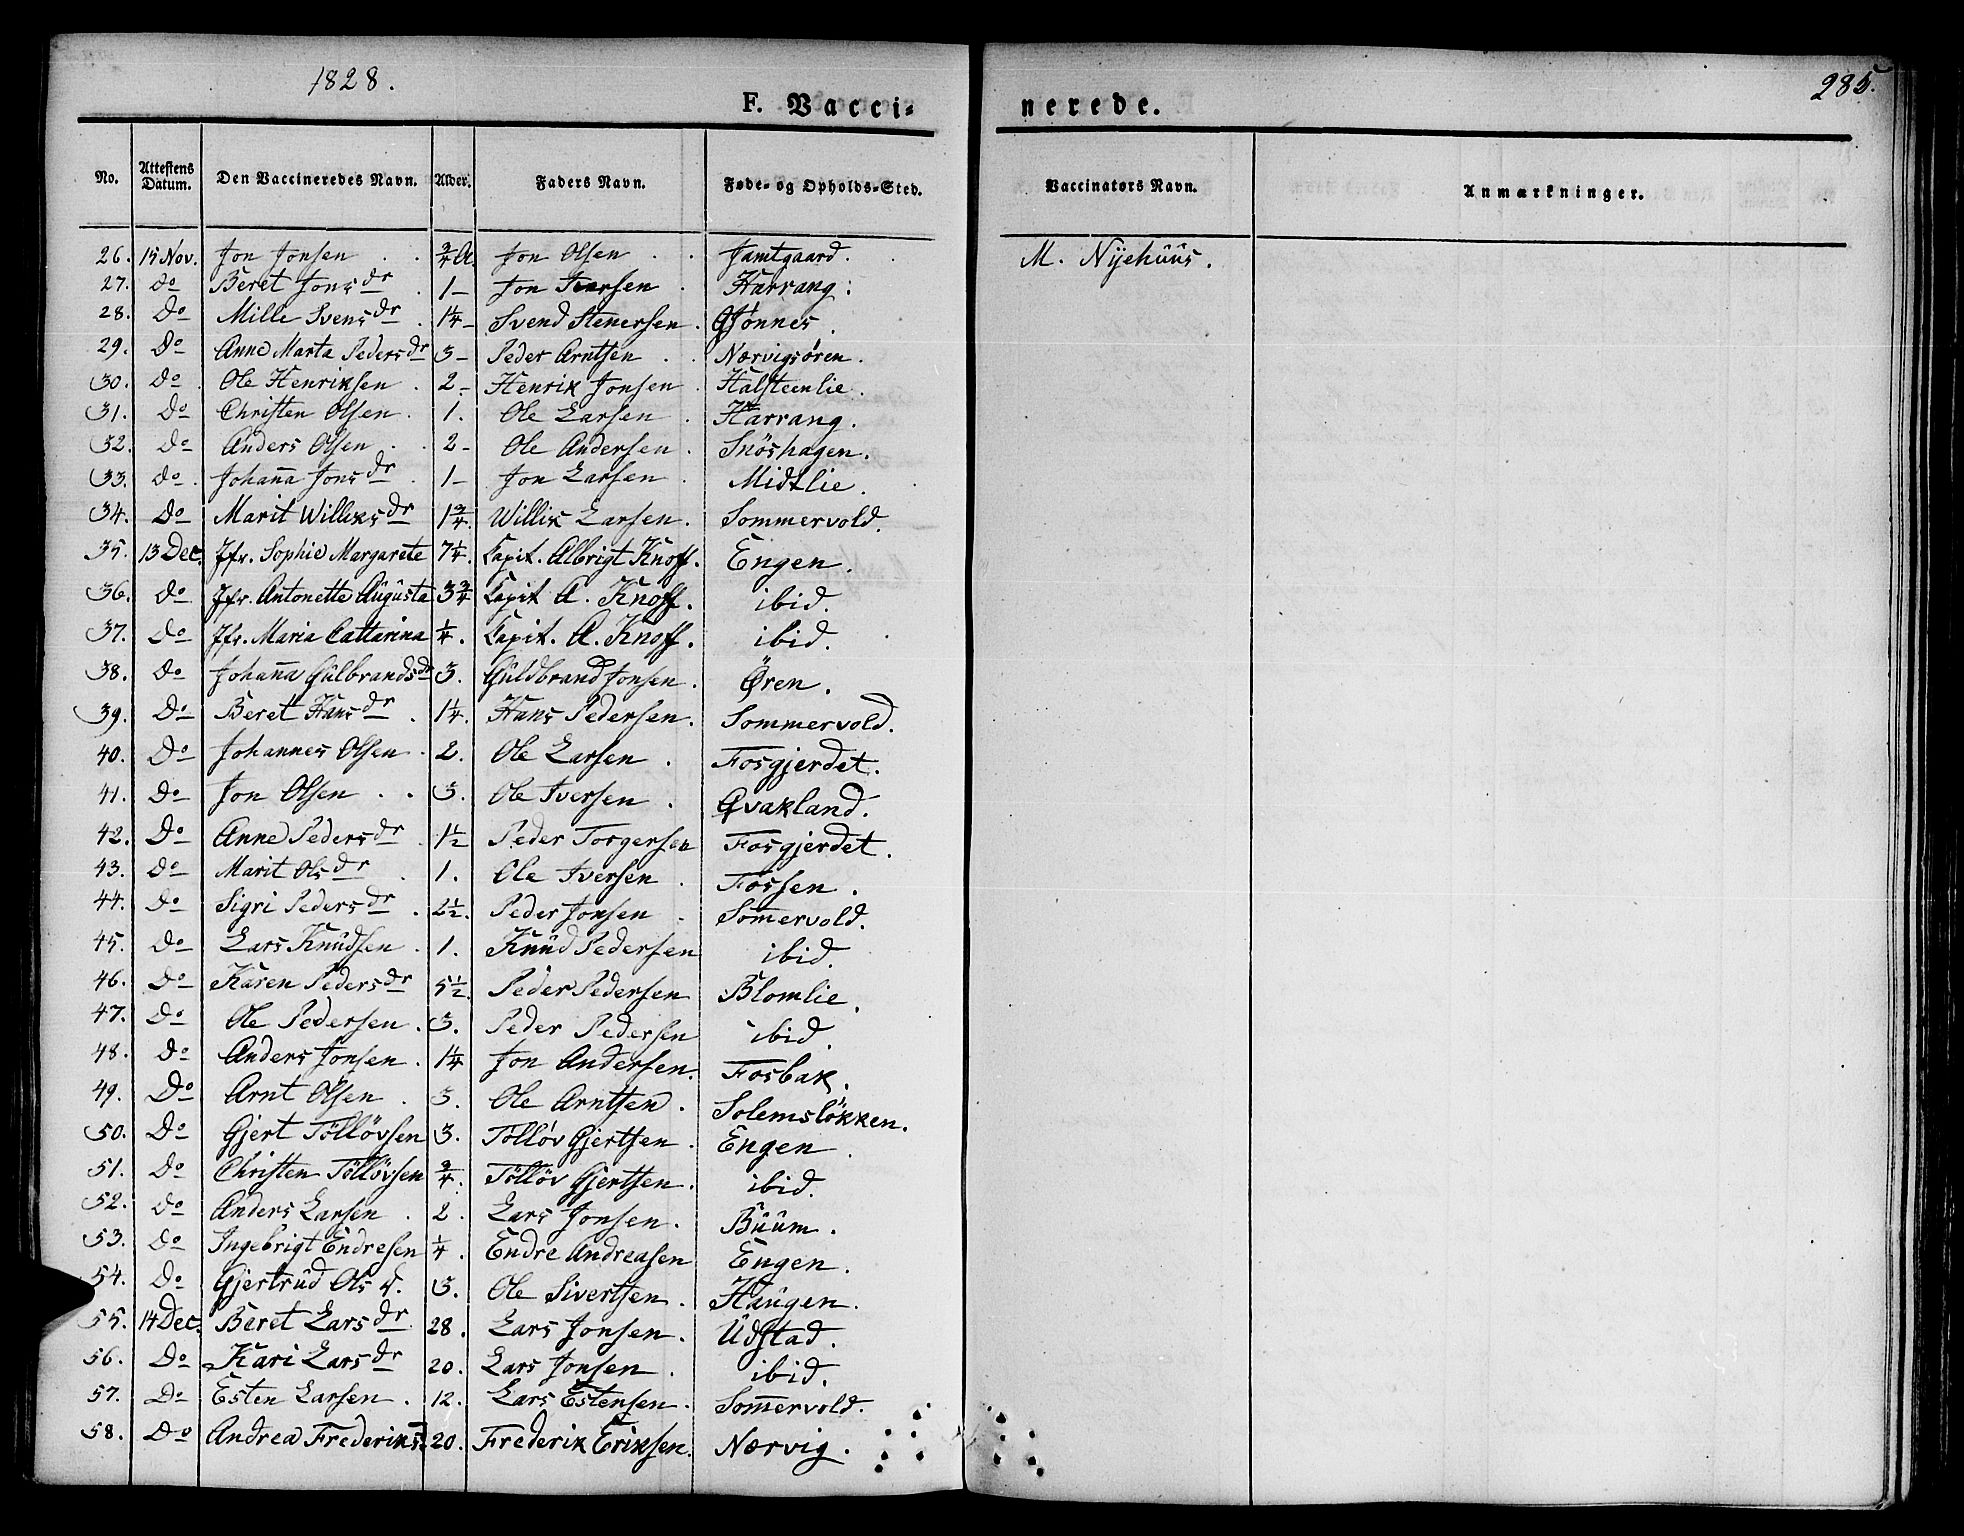 1828.
285.
F. Vacci-nerede.
No. Attestens Datum. Den Vaccineredes Navn. Alder. Faders Navn. Føde- og Opholds-Sted. Vaccinators Navn. Anmærkninger.
26. 15 Nov. Jon Jonsen . . 3/4 A. Jon Olsen . . Jamtgaard. M. Nijehuus.
27. do Beret Jonsdr . 1 - Jon Iversen . Harrang.
28. Do Mille Svensdr . 1 1/4 - Svend Stenersen . Gjönnes.
29. Do Anne Marta Pedersdr 3 - Peder Arntsen . . Nærvigsören.
30. Do . Ole Henriksen . 2 - Henrik Jonsen . Halsteenlie.
31. Do Christen Olsen . 1. Ole Larsen . Harrang.
32. Do Anders Olsen . . 2 - Ole Andersen . Snöshagen.
33. do . Johanna Jonsdr . 1 - Jon Larsen . Midtlie.
34. Do Marit Williksdr 1 3/4. Willik Larsen. Sommervold.
35. 13 Dec. Jfr. Sophie Margarete 7 1/4. Capit. Albrigt Knoff. Engen.
36. do Jfr. Antonette Augusta 3 3/4 Capit A. Knoff. ibid.
37. Do Jfr. Maria Cattarina 1/4. Capit. A. Knoff. ibid.
38. Do Johanna Gulbrandsdr 3. Guldbrand Jonsen. Øren.
39. Do Beret Hansdr . 1 1/4. Hans Pedersen. Sommervold.
40. Do Johannes Olsen . 2. Ole Larsen . Fosgjerdet.
41. Do Jon Olsen . . 3. Ole Iversen . Qvakland.
42. Do Anne Pedersdr . 1 1/2 Peder Torgersen Fosgjerdet.
43. Do Marit Olsdr . 1. Ole Iversen . Fossen.
44. Do Sigri Pedersdr . 2 1/2. Peder Jonsen . Somervold.
45. Do Lars Knudsen . 1. Knud Pedersen ibid.
46. Do Karen Pedersdr 5 1/2. Peder Pedersen Blomlie.
47. Do Ole Pedersen . 3. Peder Pedersen ibid.
48. Do Anders Jonsen . 1 1/4 Jon Andersen. Fosbak.
49. Do Arnt Olsen . 3. Ole Arntsen . Solemslökken.
50. Do Gjert Tölløvsen 3. Tölløv Gjertsen . Engen.
51. Do Christen Tölløvsen 3/4. Tölløv Gjertsen . ibid.
52. Do Anders Larsen . 2. Lars Jonsen . Buum.
53. Do Ingebrigt Endresen 1/4. Endre Andreasen Engen.
54. Do Gjertrud Ols d. 3. Ole Sivertsen . Haugen.
55. 14 Dec. Beret Larsdr 28. Lars Jonsen . Udstad.
56. Do Kari Larsdr 20. Lars Jonsen . ibid.
57. Do Esten Larsen . 12. Lars Estensen . Somervold.
58. Do Andrea Frederiksd. 20. Frederik Eriksen. Nærvig.